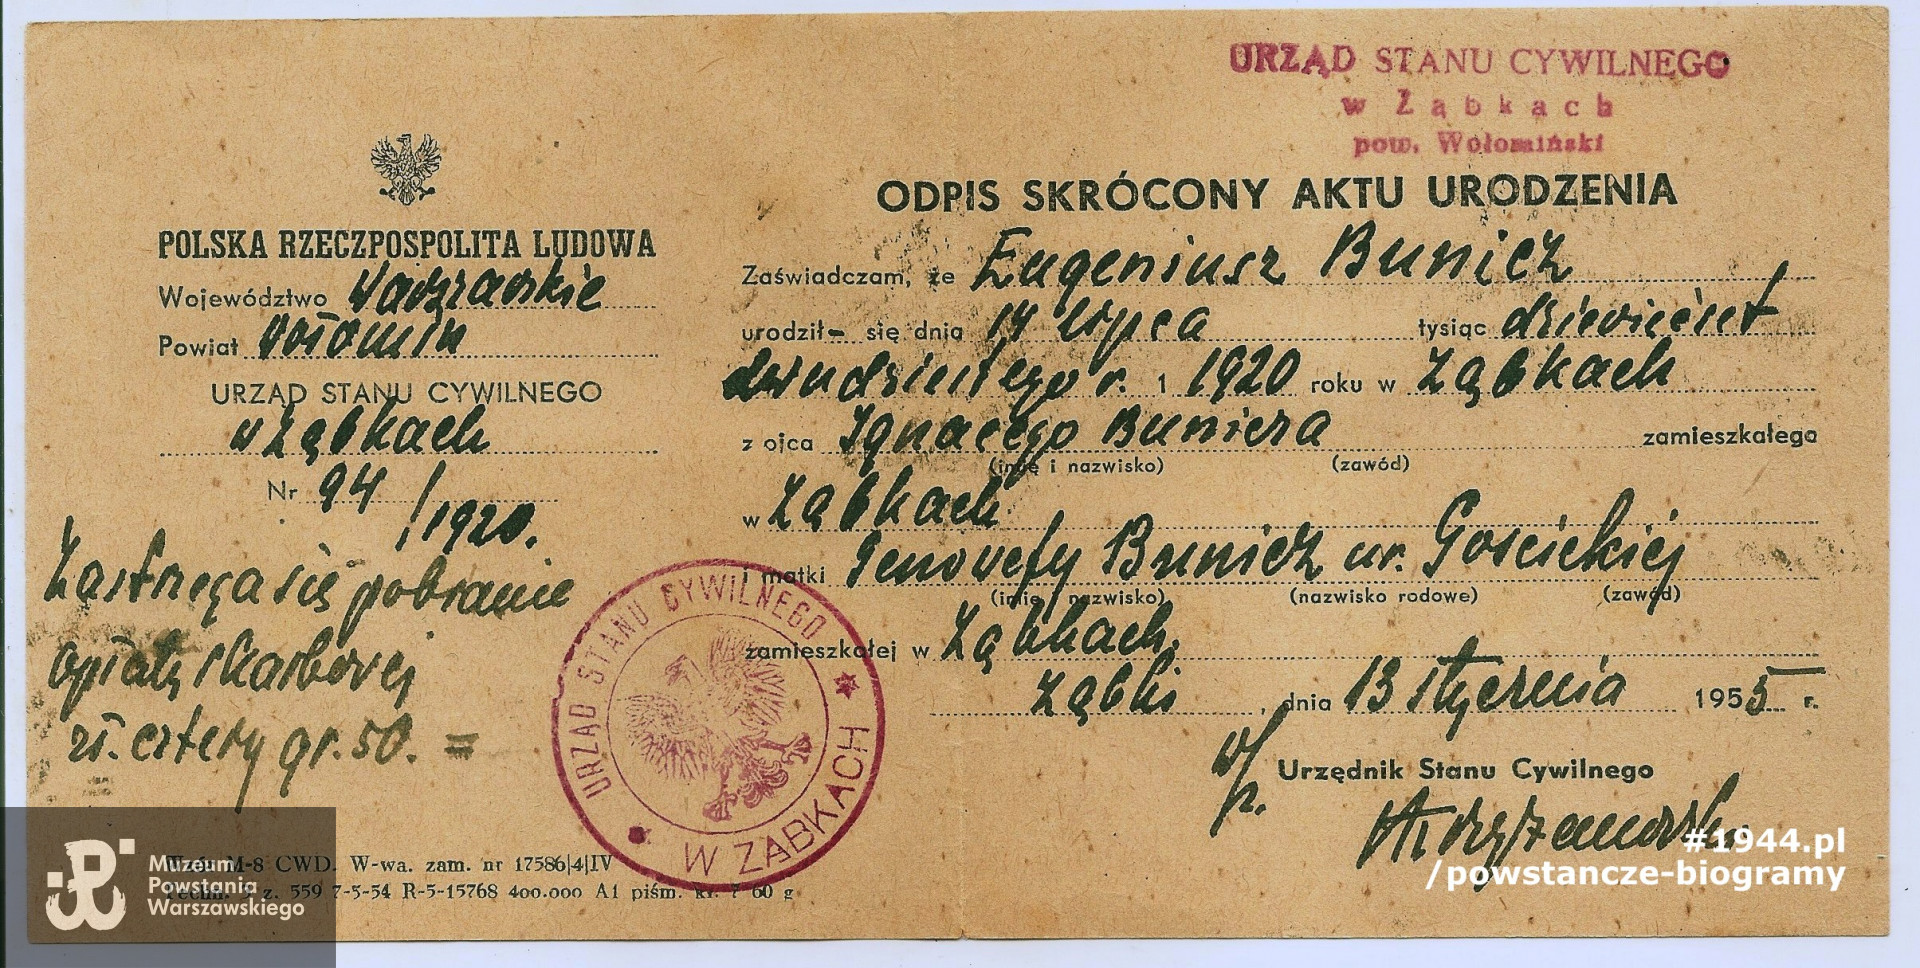 URZĄD STANU CYWILNEGO
w Ząbkach
pow. Wołomiński
POLSKA RZECZPOSPOLITA LUDOWA
Województwo Warszawskie
Powiat Wołomin
URZĄD STANU CYWILNEGO
w Ząbkach
Nr 94/1920.
Zastrzega się pobranie
opłaty skarbowej
zł. cztery gr. 50. =
ODPIS SKRÓCONY AKTU URODZENIA
Zaświadczam, że Eugeniusz Bunicz
urodził- się dnia 14 lipca tysiąc dziewięćset
dwudziestego r. 1 1920 roku w Ząbkach
z ojca Ignacego Bunicza zamieszkałego
(imię i nazwisko) (zawód)
w Ząbkach
i matki Genowefy Bunicz ur. Gościckiej
(imię i nazwisko) (nazwisko rodowe) (zawód)
zamieszkałej w Ząbkach.
Ząbki, dnia 13 stycznia 1955 r.
w/z.
Urzędnik Stanu Cywilnego
URZĄD STANU CYWILNEGO
W ZĄBKACH
M-8 CWD. W-wa. zam. nr 17586|4|IV
z. 559 7-5-54 R-5-15768 400.000 A1 piśm. kl. 7 60 g
Muzeum
Powstania
Warszawskiego
#1944.pl
/powstancze-biogramy